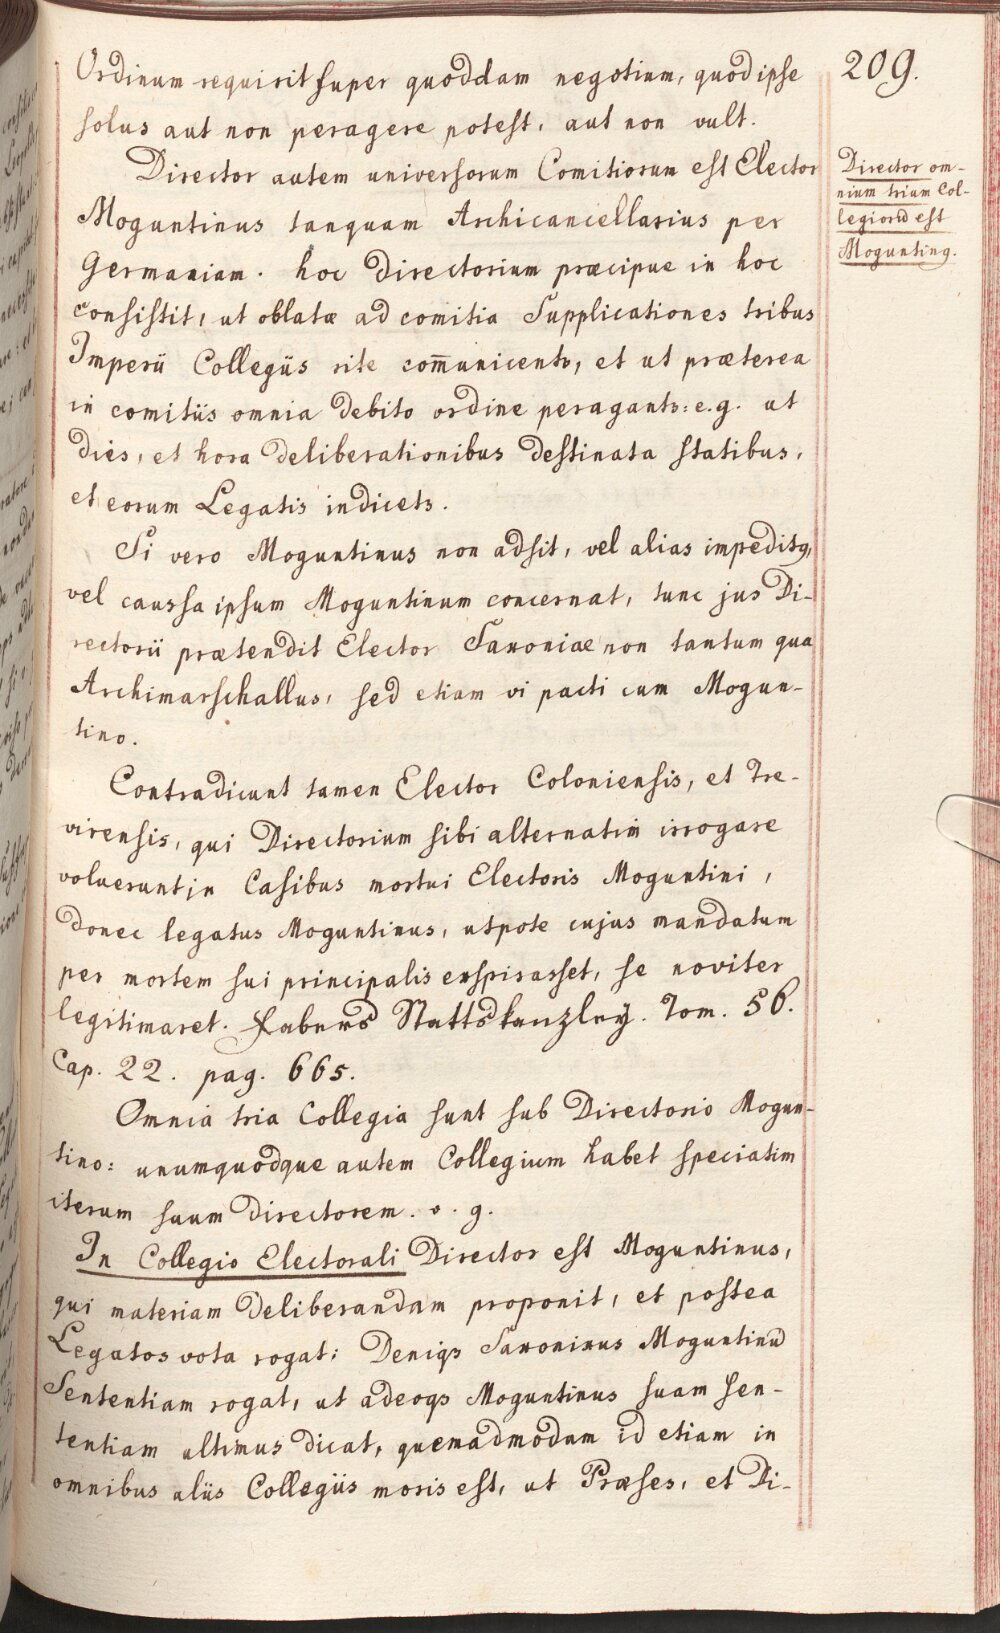 209.
Ordinum requirit super quoddam negotium, quod ipse
solus aut non peragere potest, aut non vult.
Director autem universorum Comitiorum est Elector
Moguntinus tanquam Archicancellarius per
Germaniam. hoc directorium præcipue in hoc
consistit, ut oblatæ ad comitia Supplicationes tribus
Imperii Collegiis rite com̄unicentr, et ut præterea
in comitiis omnia debito ordine peragantr: e.g. ut
dies, et hora deliberationibus destinata statibus,
et eorum Legatis indicetr.
Si vero Moguntinus non adsit, vel alias impeditq,
vel caussa ipsum Moguntinum concernat, tunc jus Di-
rectorii prætendit Elector Saxoniae non tantum qua
Archimarschallus, sed etiam vi pacti cum Mogun-
tino.
Contradicunt tamen Elector Coloniensis, et Tre-
virensis, qui Directorium sibi alternatim irrogare
voluerunt in Casibus mortui Electoris Moguntini,
donec legatus Moguntinus, utpote cujus mandatum
per mortem sui principalis exspirasset, se noviter
legitimaret. Fabers Stattskanzley. Tom. 56.
Cap. 22. pag. 665.
Omnia tria Collegia sunt sub Directorio Mogun-
tino: unumquodque autem Collegium habet speciatim
iterum suum directorem. v. g.
In Collegio Electorali Director est Moguntinus,
qui materiam deliberandam proponit, et postea
Legatos vota rogat: Deniqs Saxonicus Moguntinũ
Sententiam rogat, ut adeoqs Moguntinus suam sen-
tentiam ultimus dicat, quemadmodum id etiam in
omnibus aliis Collegiis moris est, ut Præses, et Di-
Director om-
nium trium Col-
legiorũ est
Moguntinq.